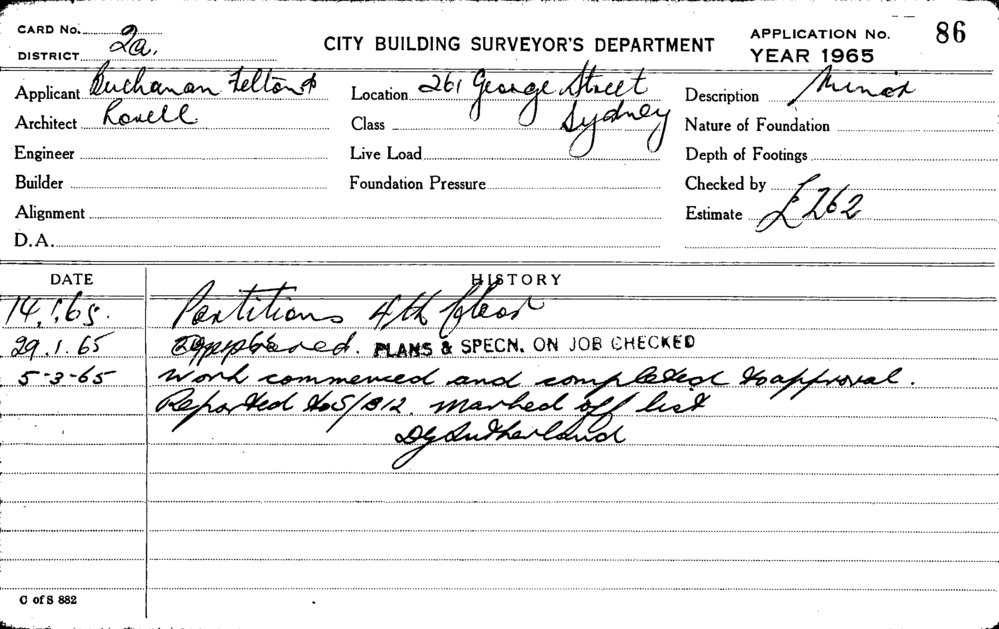 CARD No.
DISTRICT 2a.
CITY BUILDING SURVEYOR'S DEPARTMENT
APPLICATION No. 86
YEAR 1965
Applicant Buchanan Felton &
Location 261 George Street
Description Minor
Architect Lovell
Class Sydney
Nature of Foundation
Engineer
Live Load
Depth of Footings
Builder
Foundation Pressure
Checked by
Alignment
Estimate £262
D.A.
DATE HISTORY
14.1.65. Partitions 4th floor
29.1.65 Approved. PLANS & SPECN. ON JOB CHECKED
5-3-65 Work commenced and completed to approval.
Reported to S/B12. Marked off list
DG Sutherland
C of S 882